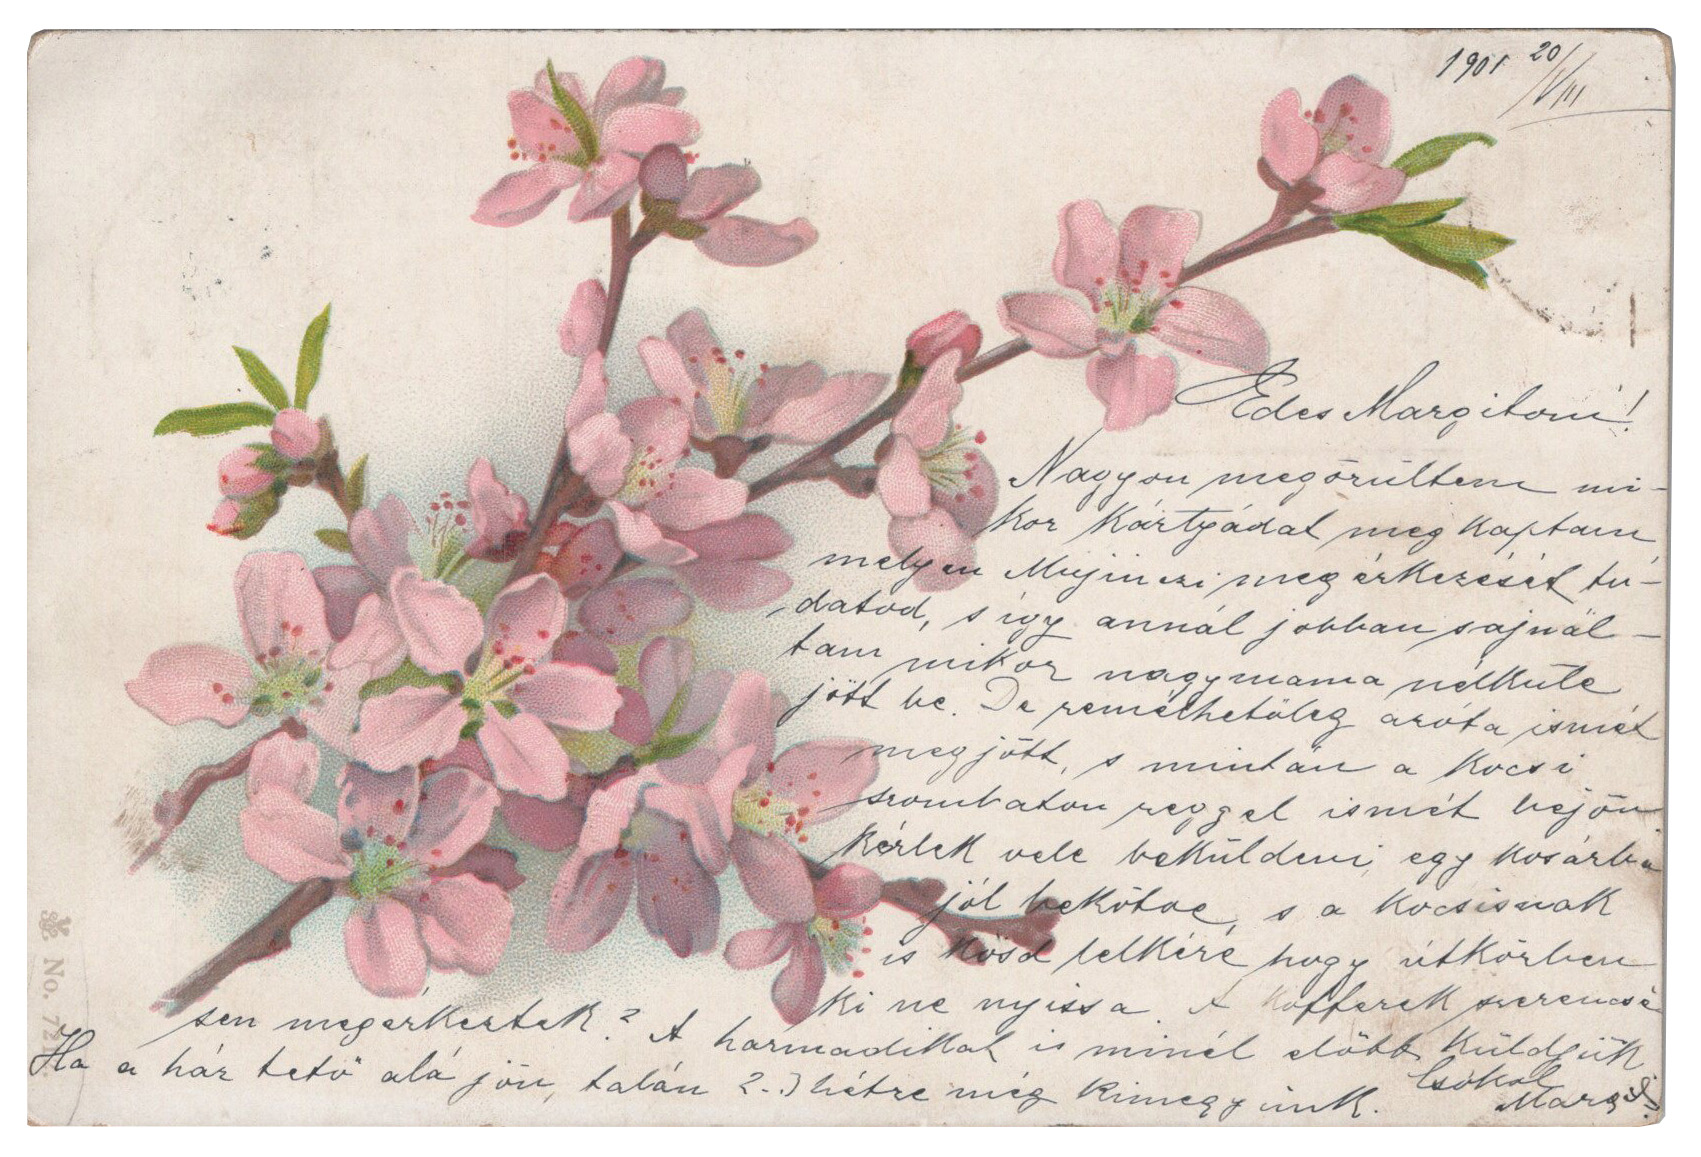 1901 20/VIII
Édes Margitom!
Nagyon megörültem mi-
kor kártyádat meg kaptam
melyen megérkezését tu-
datod, s így annál jobban sajnál-
tam mikor nagymama nélküle
jött be. De remélhetőleg azóta ismét
megjött, s mintán a kocsi
szombaton reggel ismét bejön
kérlek vele beküldeni, egy kosárba
jól bekötve, s a kocsisnak
is kösd lelkéré hogy útközben
ki ne nyissa. A kofferek szerencsé-
sen megérkeztek? A harmadikat is minél előbb küldjük
Ha a ház tető alá jön, talán 2-3 hétre még kimegyünk.
Csókol
Margit
No. 721.